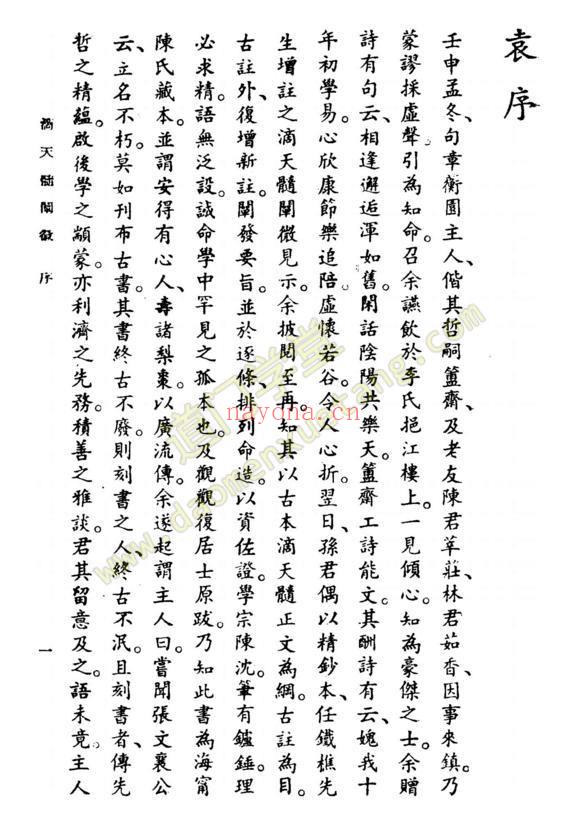 袁序
壬申孟冬、句章衡園主人、偕其哲嗣簠齋、及老友陳君莘莊、林君茹香、因事來鎮。乃
蒙謬採虛聲引為知命。召余讌飲於李氏挹江樓上。一見傾心。知為豪傑之士。余贈
詩有句云、相逢邂逅渾如舊。閑話陰陽共樂天。簠齋工詩能文。其酬詩有云、媿我十
年初學易。心欣康節樂追陪。虛懷若谷。令人心折。翌日、孫君偶以精鈔本、任鐵樵先
生增註之滴天髓闡微見示。余披閱至再。知其以古本滴天髓正文為綱。古註為目。
古註外、復增新註。闡發要旨。並於逐條、排列命造。以資佐證。學宗陳沈。筆有鑪錘。理
必求精。語無泛設。誠命學中罕見之孤本也。及觀觀復居士原跋。乃知此書為海甯
陳氏藏本。並謂安得有心人、壽諸梨棗。以廣流傳。余遂起謂主人曰。嘗聞張文襄公
云、立名不朽。莫如刊布古書。其書終古不廢。則刻書之人、終古不泯。且刻書者、傳先
哲之精蘊。啟後學之顓蒙。亦利濟之先務。積善之雅談。君其留意及之。語未竟。主人
滴天髓闡微 序
一
道门学堂
nayona.cn
www.daomenxuetang.com